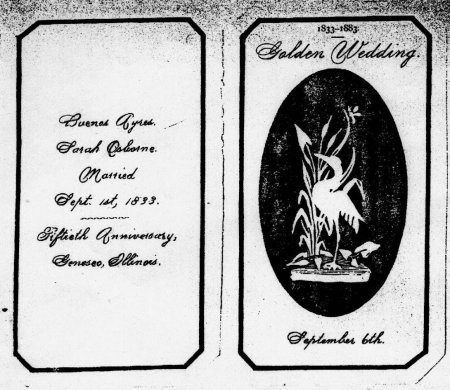 Buenos Ayres.
Sarah Osborne.
Married
Sept. 1st, 1833.
Fiftieth Anniversary,
Geneseo, Illinois.
1833-1883.
Golden Wedding.
September 6th.